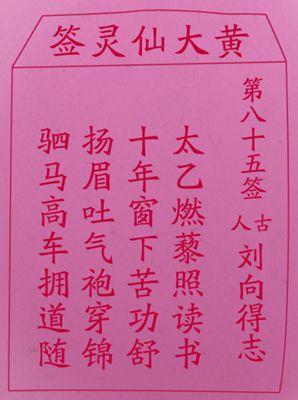 黄大仙灵签
第八十五签
古人 刘向得志
太乙燃藜照读书
十年窗下苦功舒
扬眉吐气袍穿锦
驷马高车拥道随